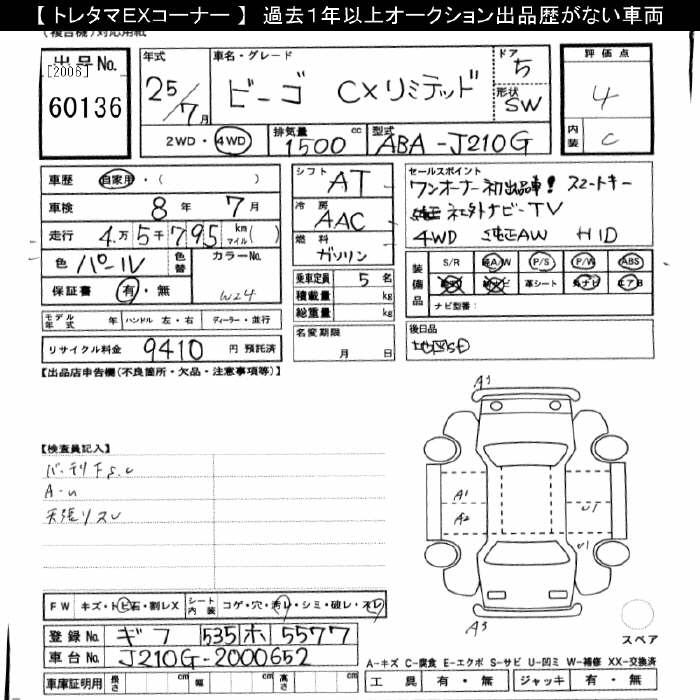 【 トレタマEXコーナー 】 過去１年以上オークション出品歴がない車両
出品No.
[2006]
60136
年式
25/7月
車名・グレード
ビーゴ CXリミテッド
ドア
5
形状
SW
評価点
4
内装
C
2WD・4WD
排気量
1500 cc
型式
ABA-J210G
車歴 自家用・( )
車検 8年 7月
走行 4万5千795 km マイル( )
色 パール
色替
カラーNo.
W24
保証書 有・無
シフト AT
冷房 AAC
燃料 ガソリン
乗車定員 5名
積載量 kg
総重量 kg
セールスポイント
ワンオーナー初出品車! スマートキー
社外ナビ-TV
4WD 純正AW HID
装備品
S/R 純A/W P/S P/W ABS
革シート エアB
ナビ型番:
モデル年式 年 ハンドル 左・右 ディーラー・並行
名変期限
月 日
後日品
リサイクル料金 9410 円 預託済
【出品店申告欄(不良箇所・欠品・注意事項等)】
【検査員記入】
A-u
天張リスレ
A1
A1
A2
U1
U1
A3
スペア
FW キズ・トビ石・割レX シート内装 コゲ・穴・汚レ・シミ・破レ・スレ
登録No. ギフ 535 ホ 5577
車台No. J210G-2000652
車庫証明用 長さ cm 幅 cm 高さ cm
A-キズ C-腐食 E-エクボ S-サビ U-凹ミ W-補修 XX-交換済
工具 有・無 ジャッキ 有・無